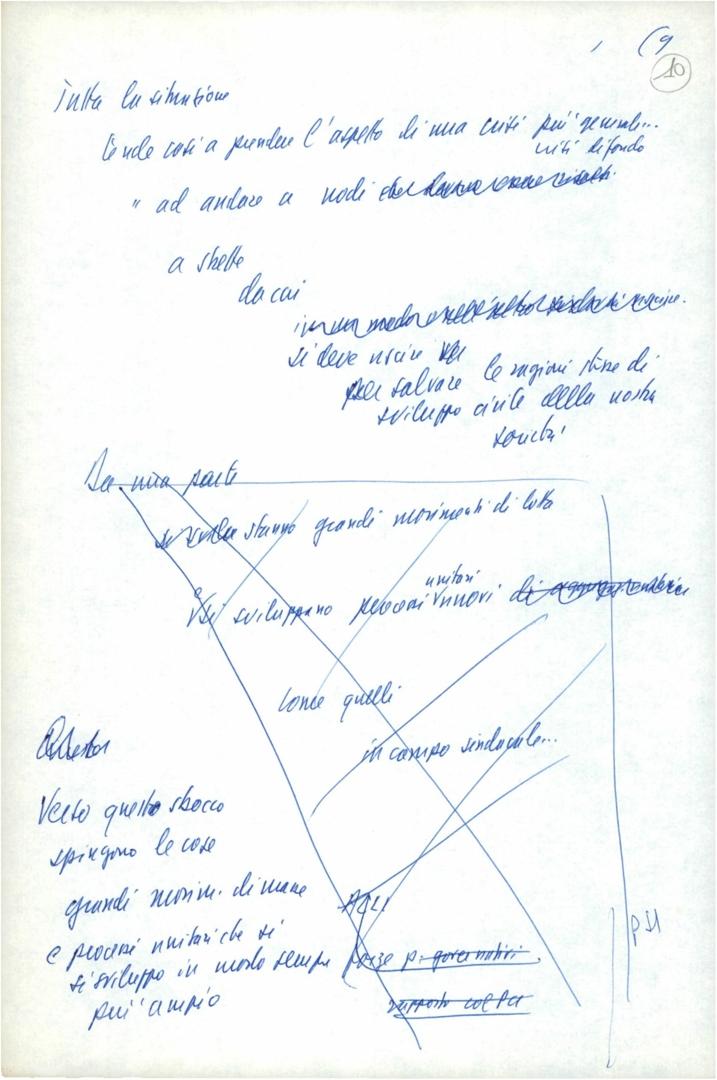 (9
10
Tutta la situazione
tende così a prendere l'aspetto di una crisi più generale...
crisi di fondo
" ad andare a nodi che
a strette
da cui
in un modo
si deve uscire
per salvare le ragioni stesse di
sviluppo civile della nostra
società
Da una parte
stanno grandi movimenti di lotta
si sviluppano processi unitari nuovi di
come quelli
in campo sindacale...
Questa
Verso questo sbocco
spingono le cose
grandi movim. di masse
e processi unitari che si
si sviluppo in modo sempre
più ampio
ACLI
forze p. governativi
rapporto col PCI
PSI